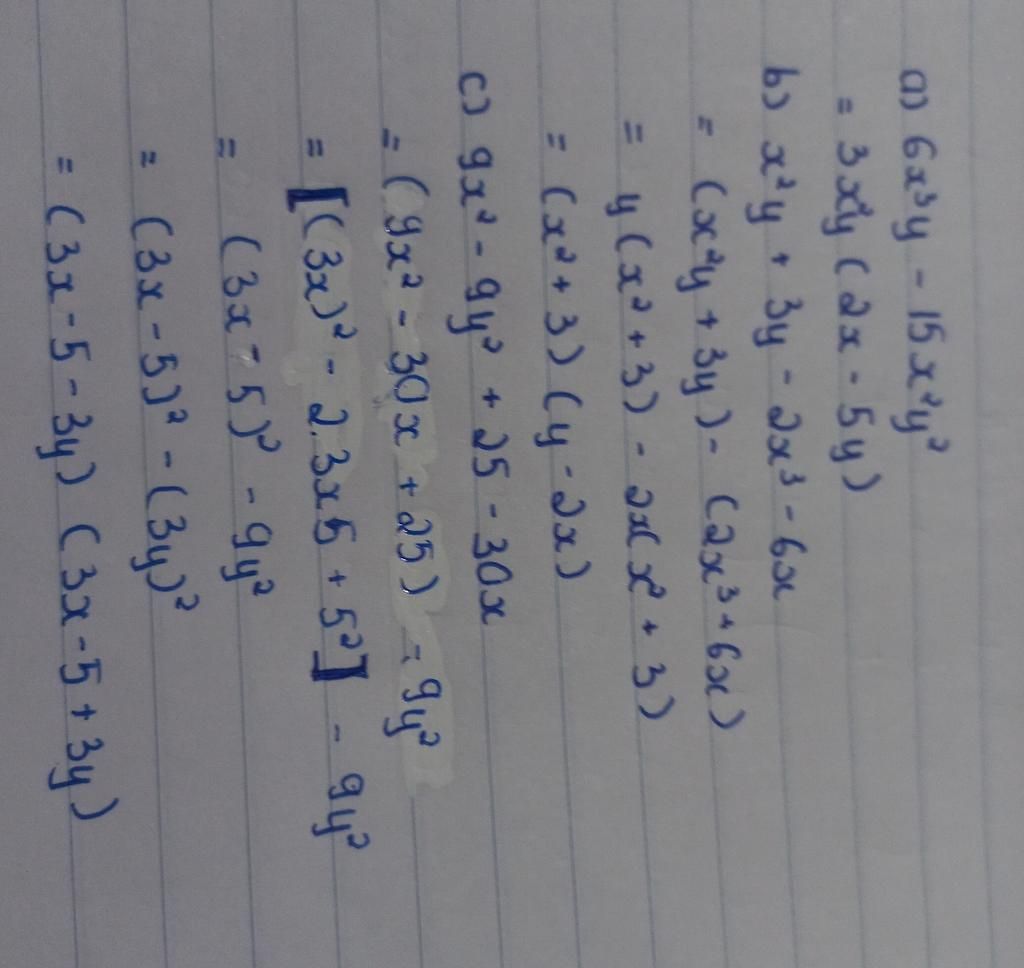 a) 6x³y - 15x²y²
= 3x²y (2x - 5y)
b) x²y + 3y - 2x³ - 6x
= (x²y + 3y) - (2x³ + 6x)
= y (x² + 3) - 2x(x² + 3)
= (x² + 3) (y - 2x)
c) 9x² - 9y² + 25 - 30x
= (9x² - 30x + 25) - 9y²
= [(3x)² - 2.3x5 + 5²] - 9y²
= (3x - 5)² - 9y²
= (3x - 5)² - (3y)²
= (3x - 5 - 3y) (3x - 5 + 3y)